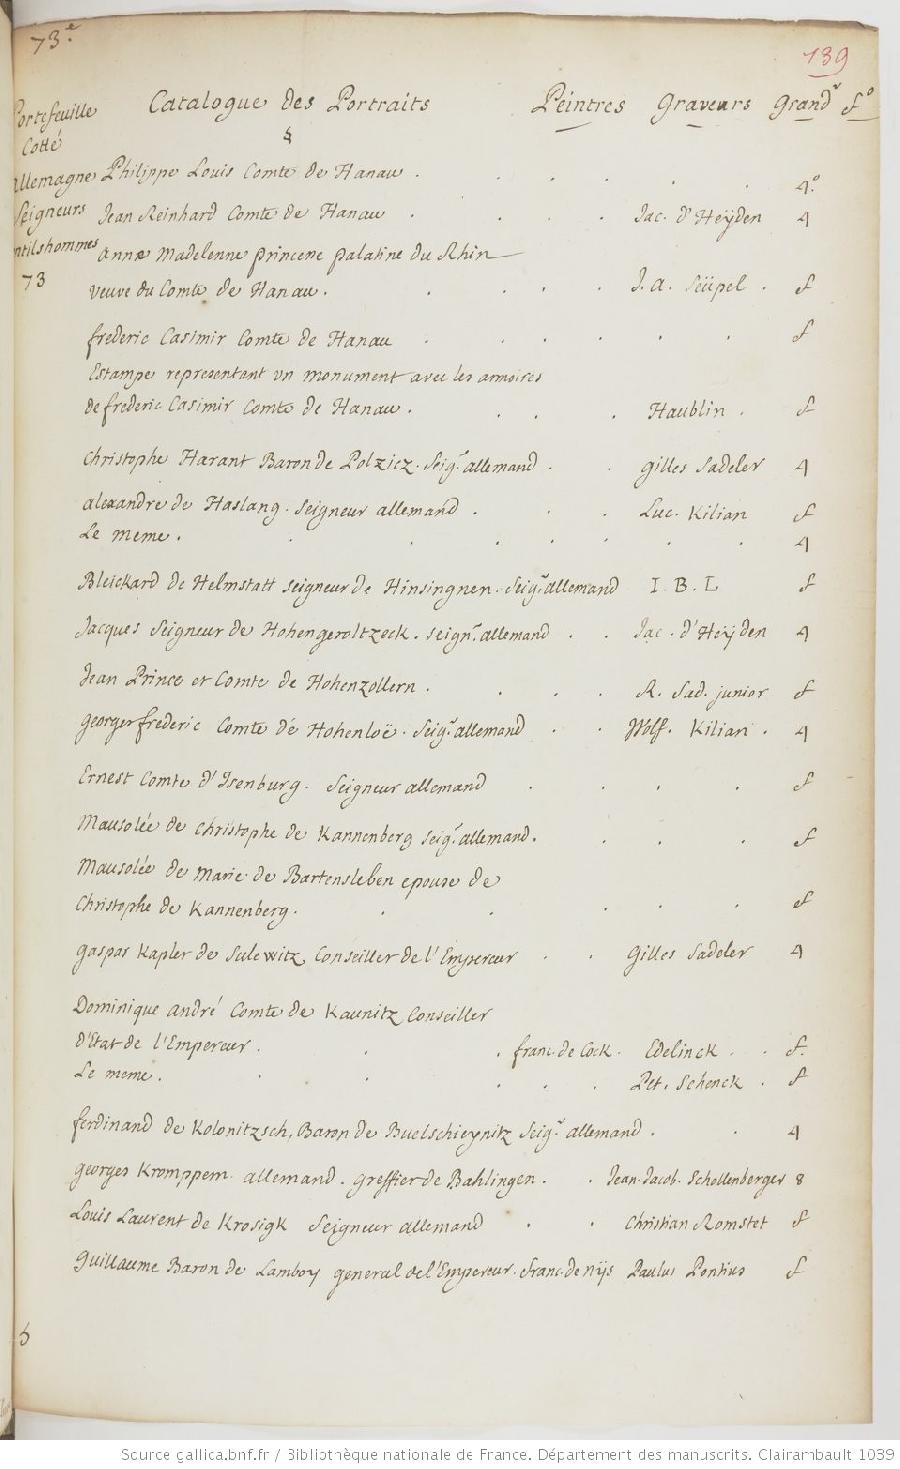 73.e
139
Portefeuille
Cotté
allemagne
Seigneurs
ntilshommes
73
Catalogue des Portraits Peintres Graveurs Grandr fo
4
Philippe Louis Comte de Hanau . . . . . . 4o
Jean Reinhard Comte de Hanau . . . . Jac. d'Heyden 4
Anne Madelenne princene palatine du Rhin
veuve du Comte de Hanau . . . . . J. A. Seüpel . f
frederic Casimir Comte de Hanau . . . . . . f
Estampe representant un monument avec les armoires
de frederic Casimir Comte de Hanau . . . . Haublin . f
Christophe Harant Baron de Polzicz . Seigr allemand . . Gilles Sadeler 4
alexandre de Haslang . Seigneur allemand . . . Luc. Kilian f
Le meme . . . . . . . . 4
Bleickard de Helmstatt seigneur de Hinsingnen . Seigr allemand I . B . L f
Jacques Seigneur de Hohengeroltzeck . seignr allemand . . Jac . d'Heyden 4
Jean Prince et Comte de Hohenzollern . . . . R. Sad. junior f
george frederic Comte de Hohenloë . Seigr allemand . . Wolf. Kilian . 4
Ernest Comte d'Isenburg . Seigneur allemand . . . . f
Mausolée de Christophe de Kannenberg Seigr allemand . . . . f
Mausolée de Marie de Bartensleben epouse de
Christophe de Kannenberg . . . . . . f
gaspar Kapler de Sulewitz, Conseiller de l'Empereur . . Gilles Sadeler 4
Dominique André Comte de Kaunitz Conseiller
d'Etat de l'Empereur . . . franc. de Cock . Edelinck . . f.
Le meme . . . . . . Pet. Schenck . f
ferdinand de Kolonitzsch, Baron de Buelschieynitz Seigr allemand . . 4
georges Kromppem . allemand . greffier de Bahlingen . . Jean-Jacob. Schellenberger 8
Louis Laurent de Krosigk Seigneur allemand . . Christian Romstet f
Guillaume Baron de Lamboy general de l'Empereur . franc. de nijs Paulus Pontius f
Source gallica.bnf.fr / Bibliothèque nationale de France. Département des manuscrits. Clairambault 1039